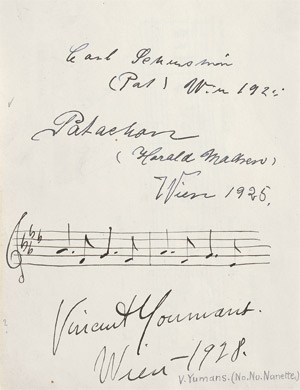 Carl Schenstrøm
(Pat) Wien 192
Patachon
(Harald Madsen)
Wien 1925.
Vincent Youmans.
Wien - 1928.
V. Yumans. (No. No. Nanette)